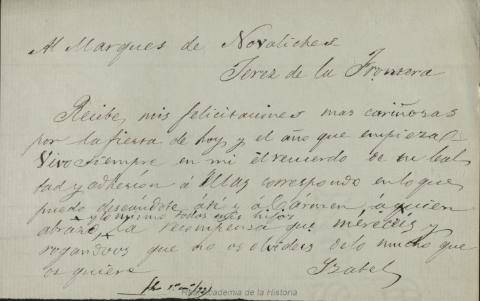 Al Marques de Novaliches
Jerez de la Frontera
Recibe, mis felicitaciones mas cariñosas
por la fiesta de hoy y el año que empieza
Vivo siempre en mi el recuerdo de su leal
tad y adhesion á correspondo en lo que
puedo deseándote á ti y á Cármen, a quien
y lo mismo todos mis hijos
abrazo, la recompensa que mereceis y
rogandoos que no os olvideis de lo mucho que
os quiere Isabel
Real Academia de la Historia